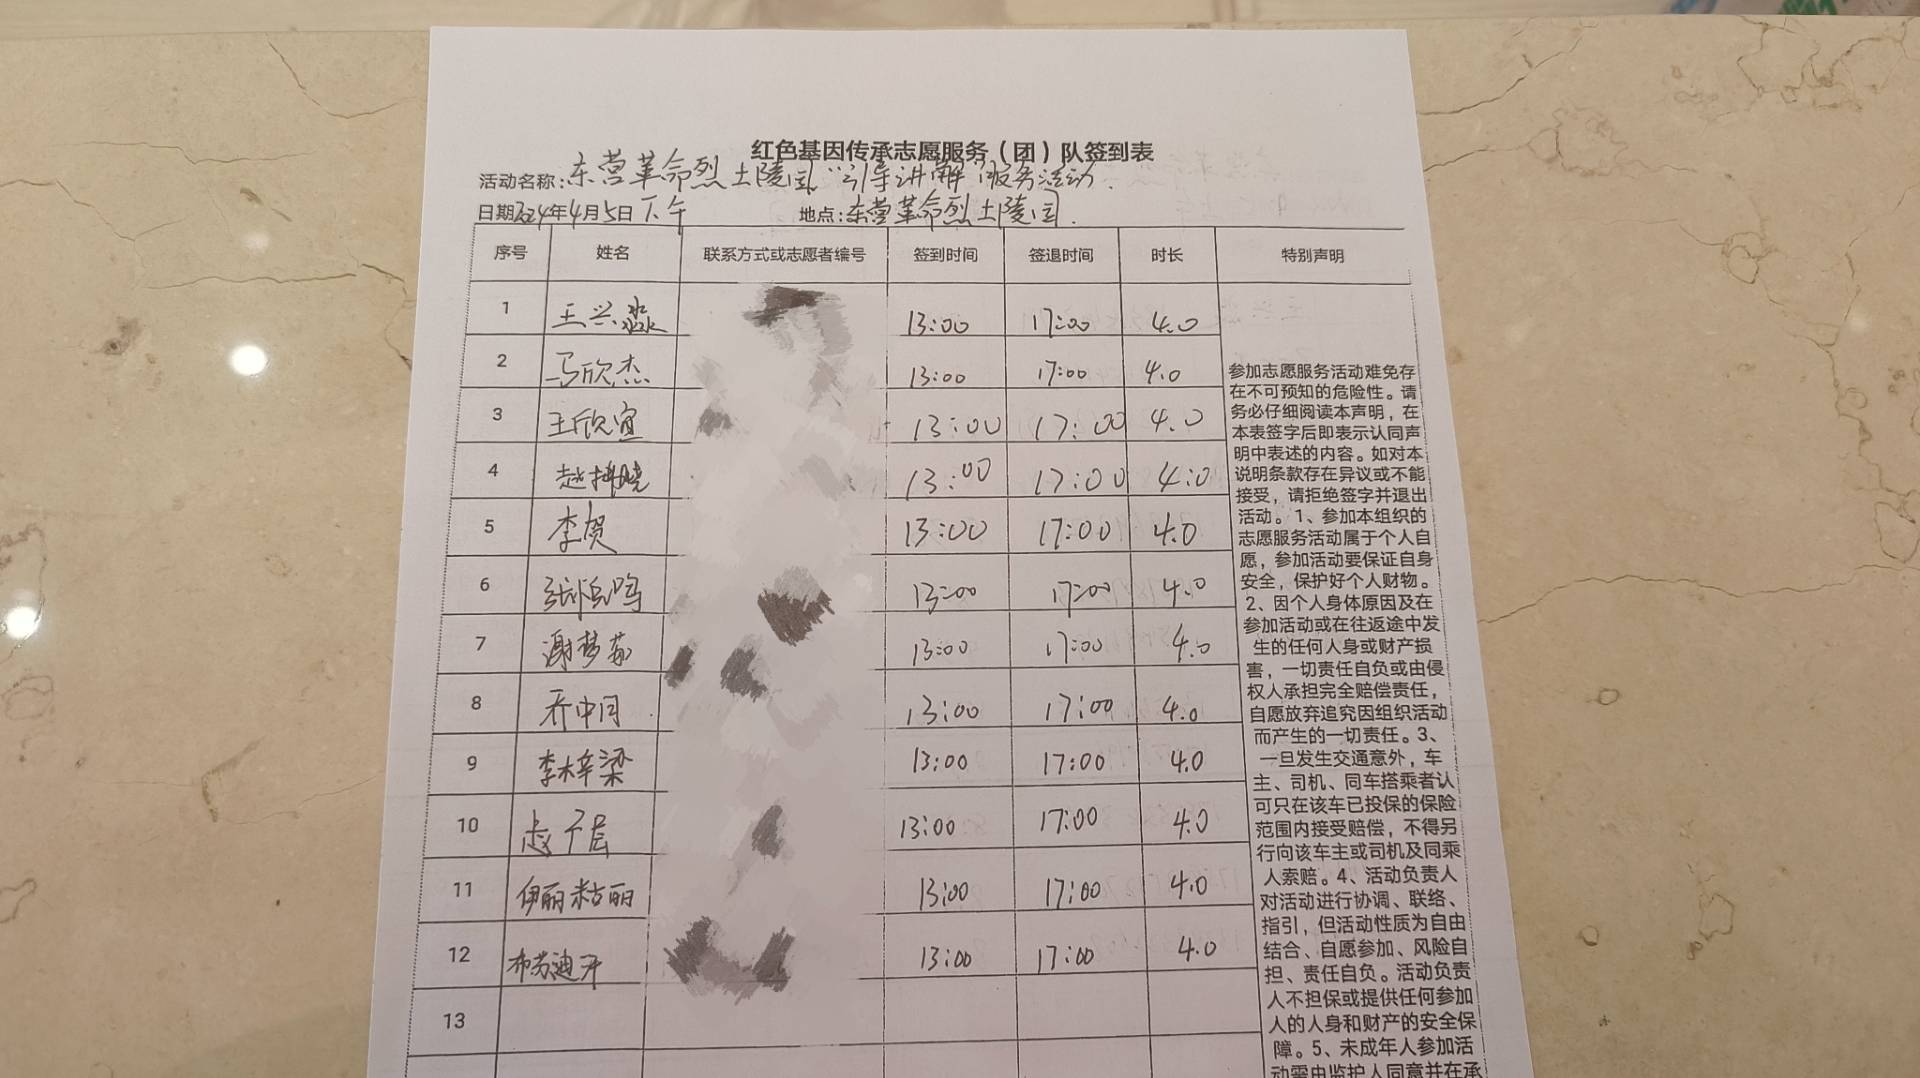 红色基因传承志愿服务（团）队签到表
活动名称：东营革命烈士陵园“引导讲解”服务活动.
日期2024年4月5日下午 地点：东营革命烈士陵园.
序号 姓名 联系方式或志愿者编号 签到时间 签退时间 时长 特别声明
1 王兴淼 13:00 17:00 4.0
2 马欣杰 13:00 17:00 4.0
3 王欣宜 13:00 17:00 4.0
4 13:00 17:00 4.0
5 李贺 13:00 17:00 4.0
6 13:00 17:00 4.0
7 谢梦 13:00 17:00 4.0
8 乔中同 13:00 17:00 4.0
9 李梓梁 13:00 17:00 4.0
10 13:00 17:00 4.0
11 伊丽粘丽 13:00 17:00 4.0
12 布苏迪牙 13:00 17:00 4.0
13
参加志愿服务活动难免存
在不可预知的危险性。请
务必仔细阅读本声明，在
本表签字后即表示认同声
明中表述的内容。如对本
说明条款存在异议或不能
接受，请拒绝签字并退出
活动。1、参加本组织的
志愿服务活动属于个人自
愿，参加活动要保证自身
安全，保护好个人财物。
2、因个人身体原因及在
参加活动或在往返途中发
生的任何人身或财产损
害，一切责任自负或由侵
权人承担完全赔偿责任，
自愿放弃追究因组织活动
而产生的一切责任。3、
一旦发生交通意外，车
主、司机、同车搭乘者认
可只在该车已投保的保险
范围内接受赔偿，不得另
行向该车主或司机及同乘
人索赔。4、活动负责人
对活动进行协调、联络、
指引，但活动性质为自由
结合、自愿参加、风险自
担、责任自负。活动负责
人不担保或提供任何参加
人的人身和财产的安全保
障。5、未成年人参加活
动需由监护人同意并在承